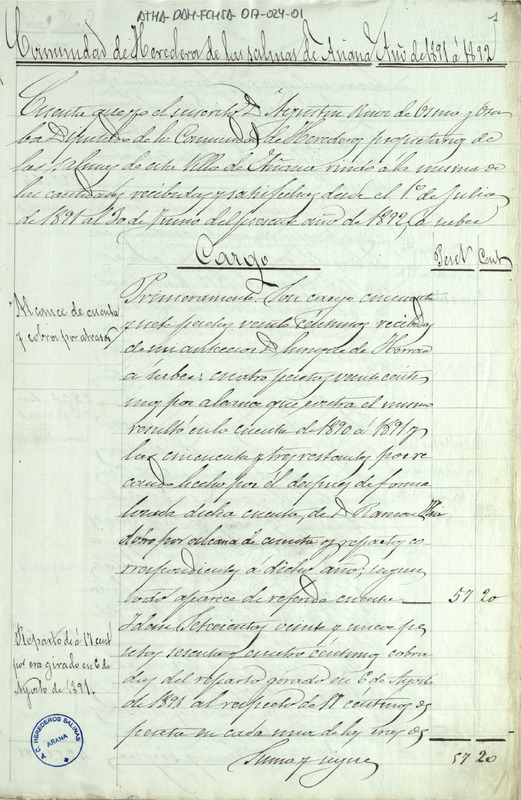 ATHA-DAH-FCHSA 017-024-01
1
Comunidad de Herederos de las Salinas de Añana Año de 1891 á 1892
Cuenta que yo el suscrito D. Agustin Ruiz de Osma y
Diputado de la Comunidad de Herederos propietarios de
las Salinas de esta Villa de Añana rindo a la misma de
las cantidades recibidas y satisfechas desde el 1º de Julio
de 1891 al 30 de Junio del presente año de 1892, a saber
Cargo
Peset Cent
Alcance de cuenta
y cobros por atrasos
Primeramente. Son cargo cincuenta
y siete pesetas veinte céntimos recibidas
de mi antecesor D.
á saber: cuatro pesetas veinte cénti
mos por alcance que contra el mismo
resultó en la cuenta de 1890 á 1891 y
las cincuenta y tres restantes por re
caudo hecho por él despues de forma
lizada dicha cuenta, de D. Ramon
por alcance de cuenta y reparto co
rrespondiente á dicho año, segun
todo aparece de referida cuenta 57 20
Reparto de á 17 cent
por era girado en 6 de
Agosto de 1891.
Idem. Setecientas veinte y nueve pe
setas sesenta y cuatro céntimos cobra
das del reparto girado en 6 de Agosto
de 1891 al respecto de 17 céntimos de
peseta en cada una de las eras de
Suma y sigue 57 20
A.C. HEREDEROS SALINAS
AÑANA